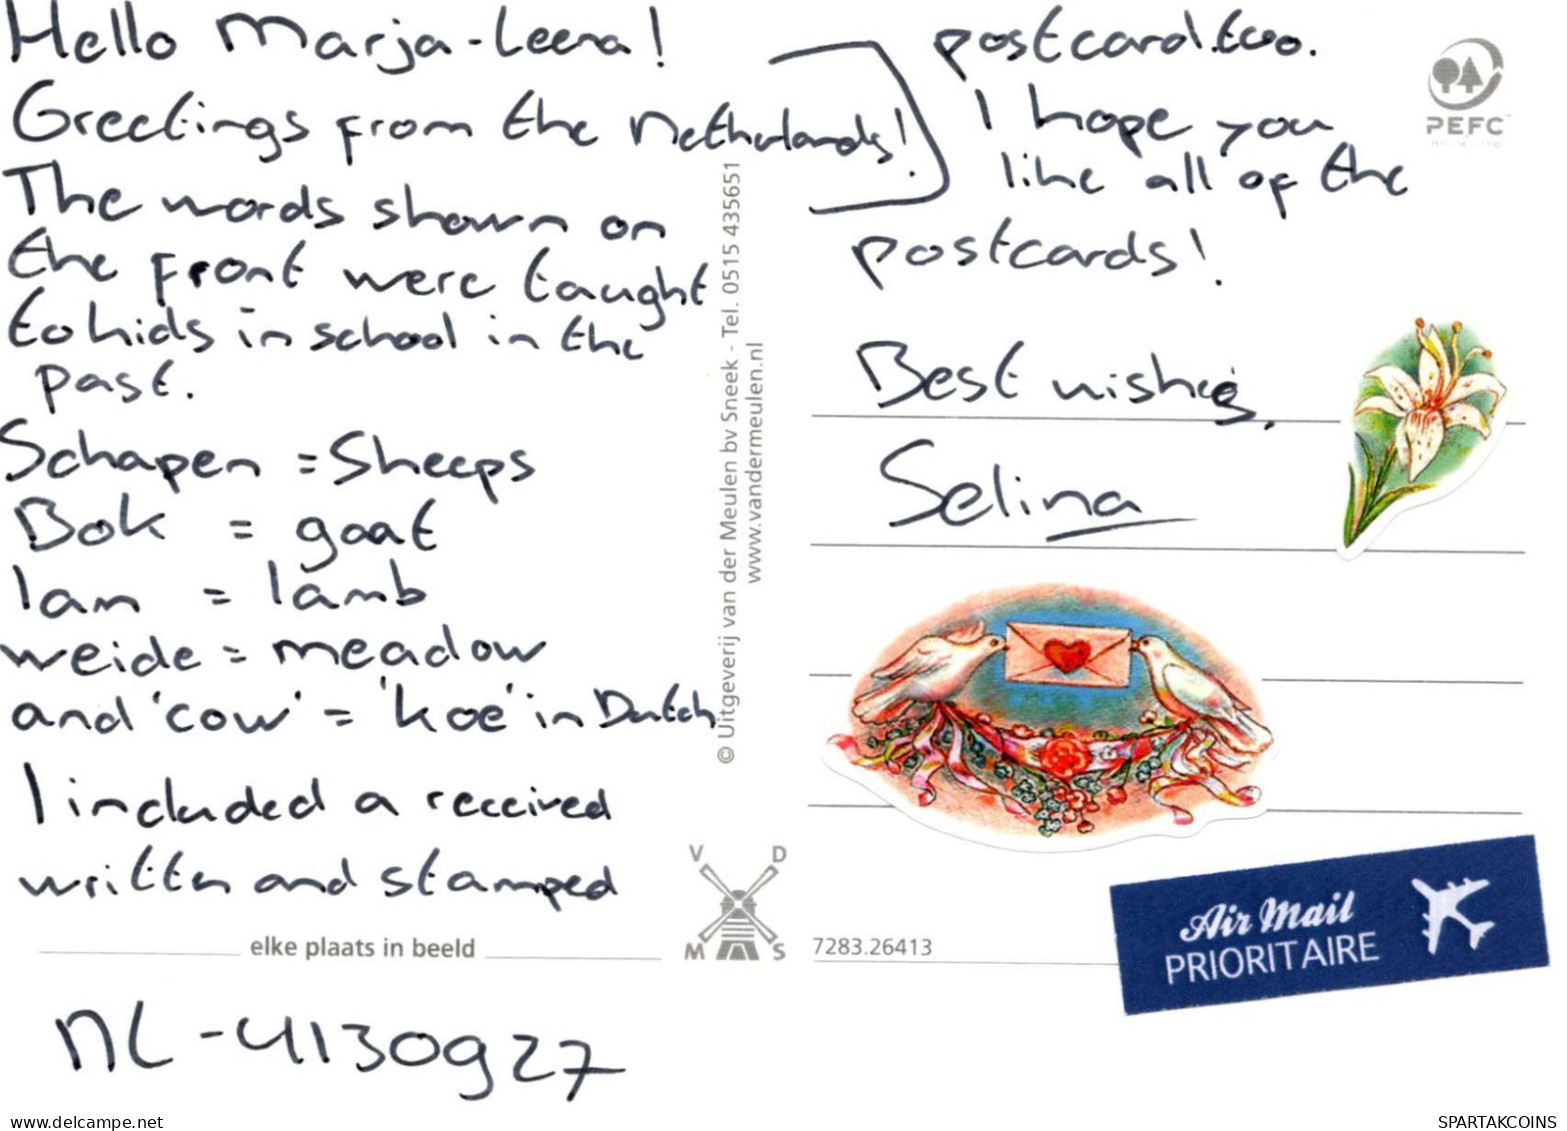 Hello Marja-Leena!
Greetings from the Netherlands!
The words shown on
the front were taught
to kids in school in the
past.
Schapen = Sheeps
Bok = goat
lam = lamb
weide = meadow
and 'cow' = 'koe' in Dutch.
I included a received
written and stamped
postcard too.
I hope you
like all of the
postcards!
Best wishes,
Selina
NL-4130927
© Uitgeverij van der Meulen bv Sneek - Tel. 0515 435651
www.vandermeulen.nl
elke plaats in beeld
V D
M S
7283.26413
PEFC
Air Mail
PRIORITAIRE
any-lot.com
SPARTAKCOINS